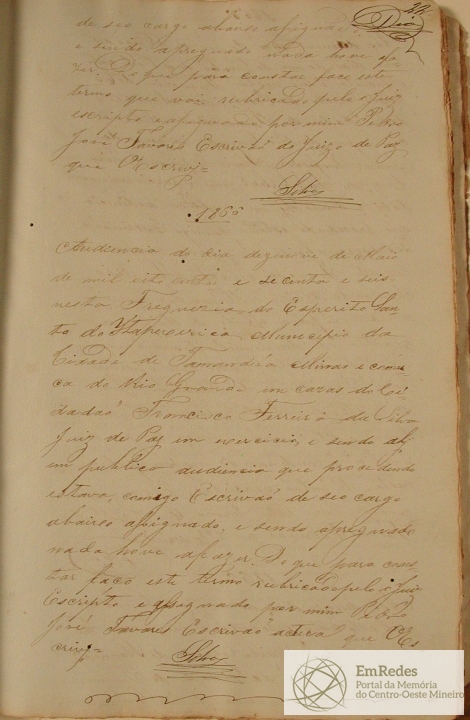 de seo cargo abaixo asignado
e sendo apregoado nada hove fa-
zer. De que para constar faço este
termo que vai rubricado pelo Juiz
escripto e asignado por mim Pedro
José Tavares Escrivaõ do Juizo de Paz
que O escrivi=
Silva
1866
Audiencia do dia desenove de Maio
de mil oito centos e secenta e seis
nesta Freguezia do Esperito San-
to do Ytapecerica Municipio da
Cidade de Tamanduá Minas e comar-
ca do Rio Grande em cazas do Ci-
dadaõ Francisco Ferreira da Silva
Juiz de Paz em exercicio, e sendo ahi
em publica audiencia que procedendo
estava, comigo Escrivaõ de seo cargo
abaixo asignado, e sendo apregoado
nada hove afazer. De que para cons-
tar faço este termo rubricado pelo Juiz
Escripto e asignado por mim Pedro
José Tavares Escrivaõ que O Es
crivi=
Silva
EmRedes
Portal da Memória
do Centro-Oeste Mineiro